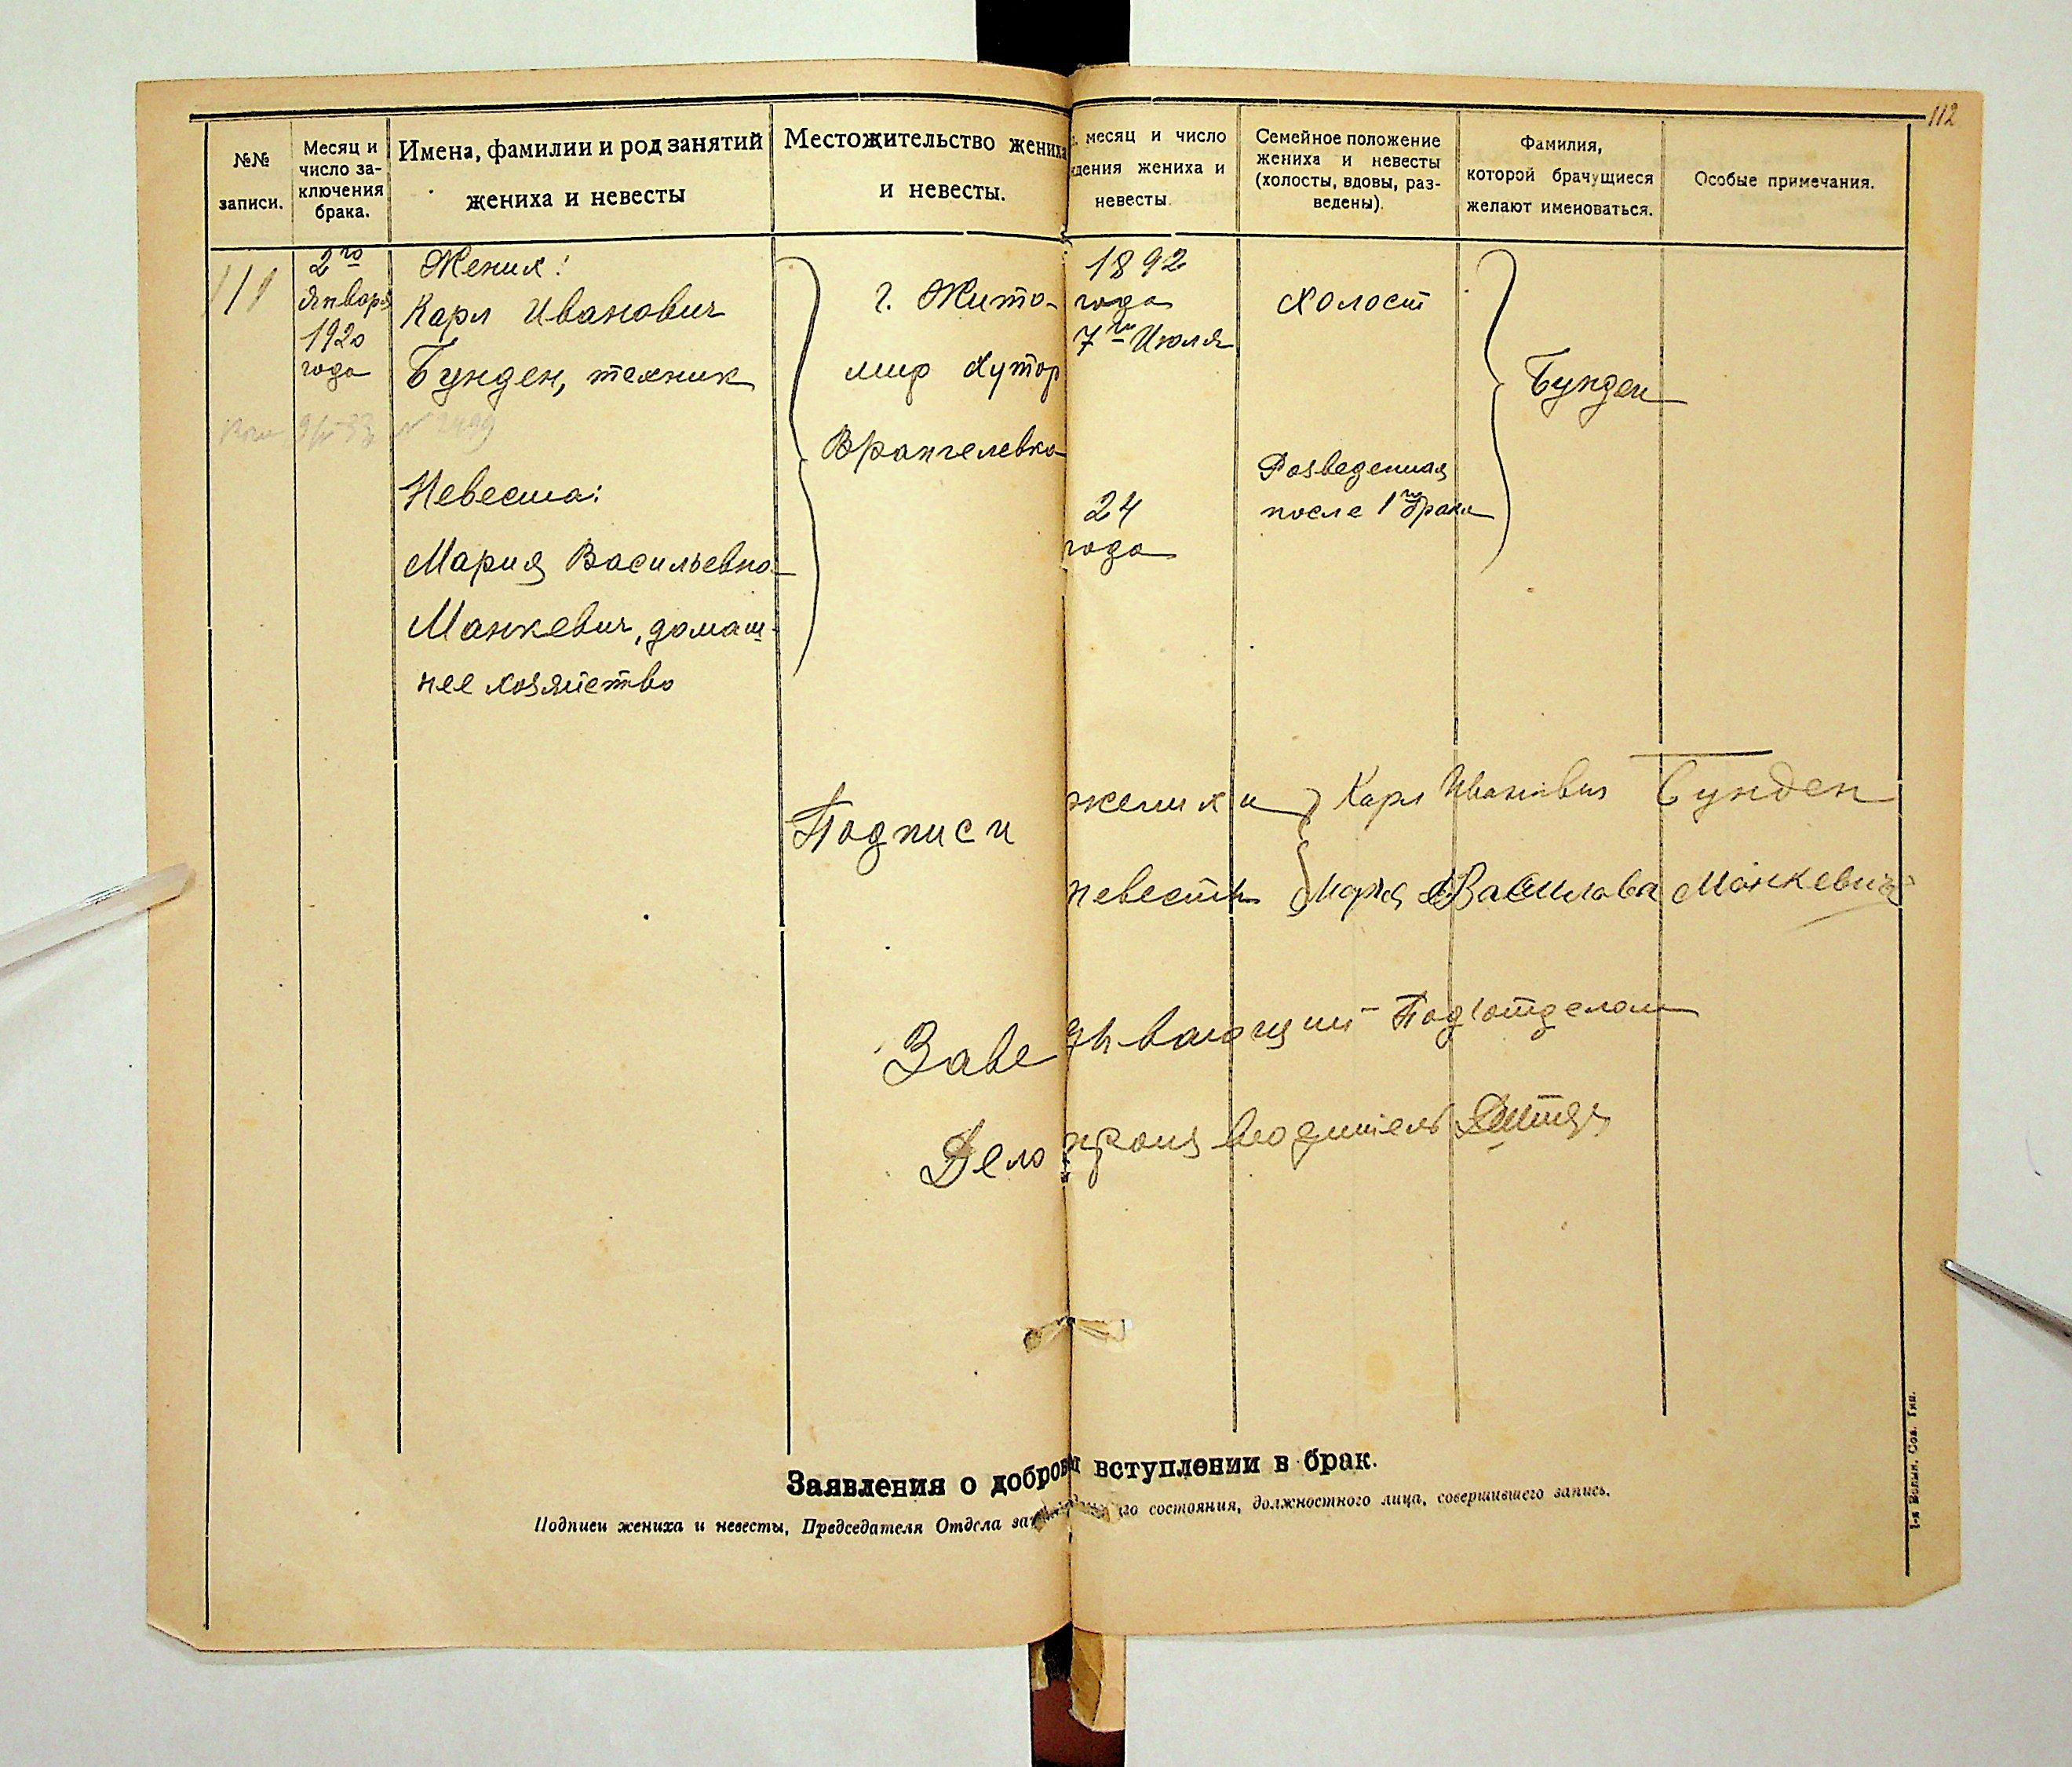 112
№№ записи.
Месяц и число за-
ключения брака.
Имена, фамилии и род занятий
жениха и невесты
Местожительство жениха
и невесты.
месяц и число
дения жениха и
невесты.
Семейное положение
жениха и невесты
(холосты, вдовы, раз-
ведены).
Фамилия,
которой брачущиеся
желают именоваться.
Особые примечания.
111
2го
Января
1920
года
Жених:
Карл Иванович
Бунден, техник
Невеста:
Мария Васильевна
Манкевич, домаш-
нее хозяйство
г. Жито-
мир Хутор
Врангелевка
1892
года
7го Июля
24
года
Холост
Разведенная
после 1го брака
Бунден
Подписи
жениха и
невесты
Карл Иванович Бунден
Мария Василивна Манкевич
Заведывающий Под'отделом
Делопроизводитель
Заявления о добров вступлении в брак.
Подписи жениха и невесты, Председателя Отдела за го состояния, должностного лица, совершившего запись.
1-я Волын. Сов. Тип.